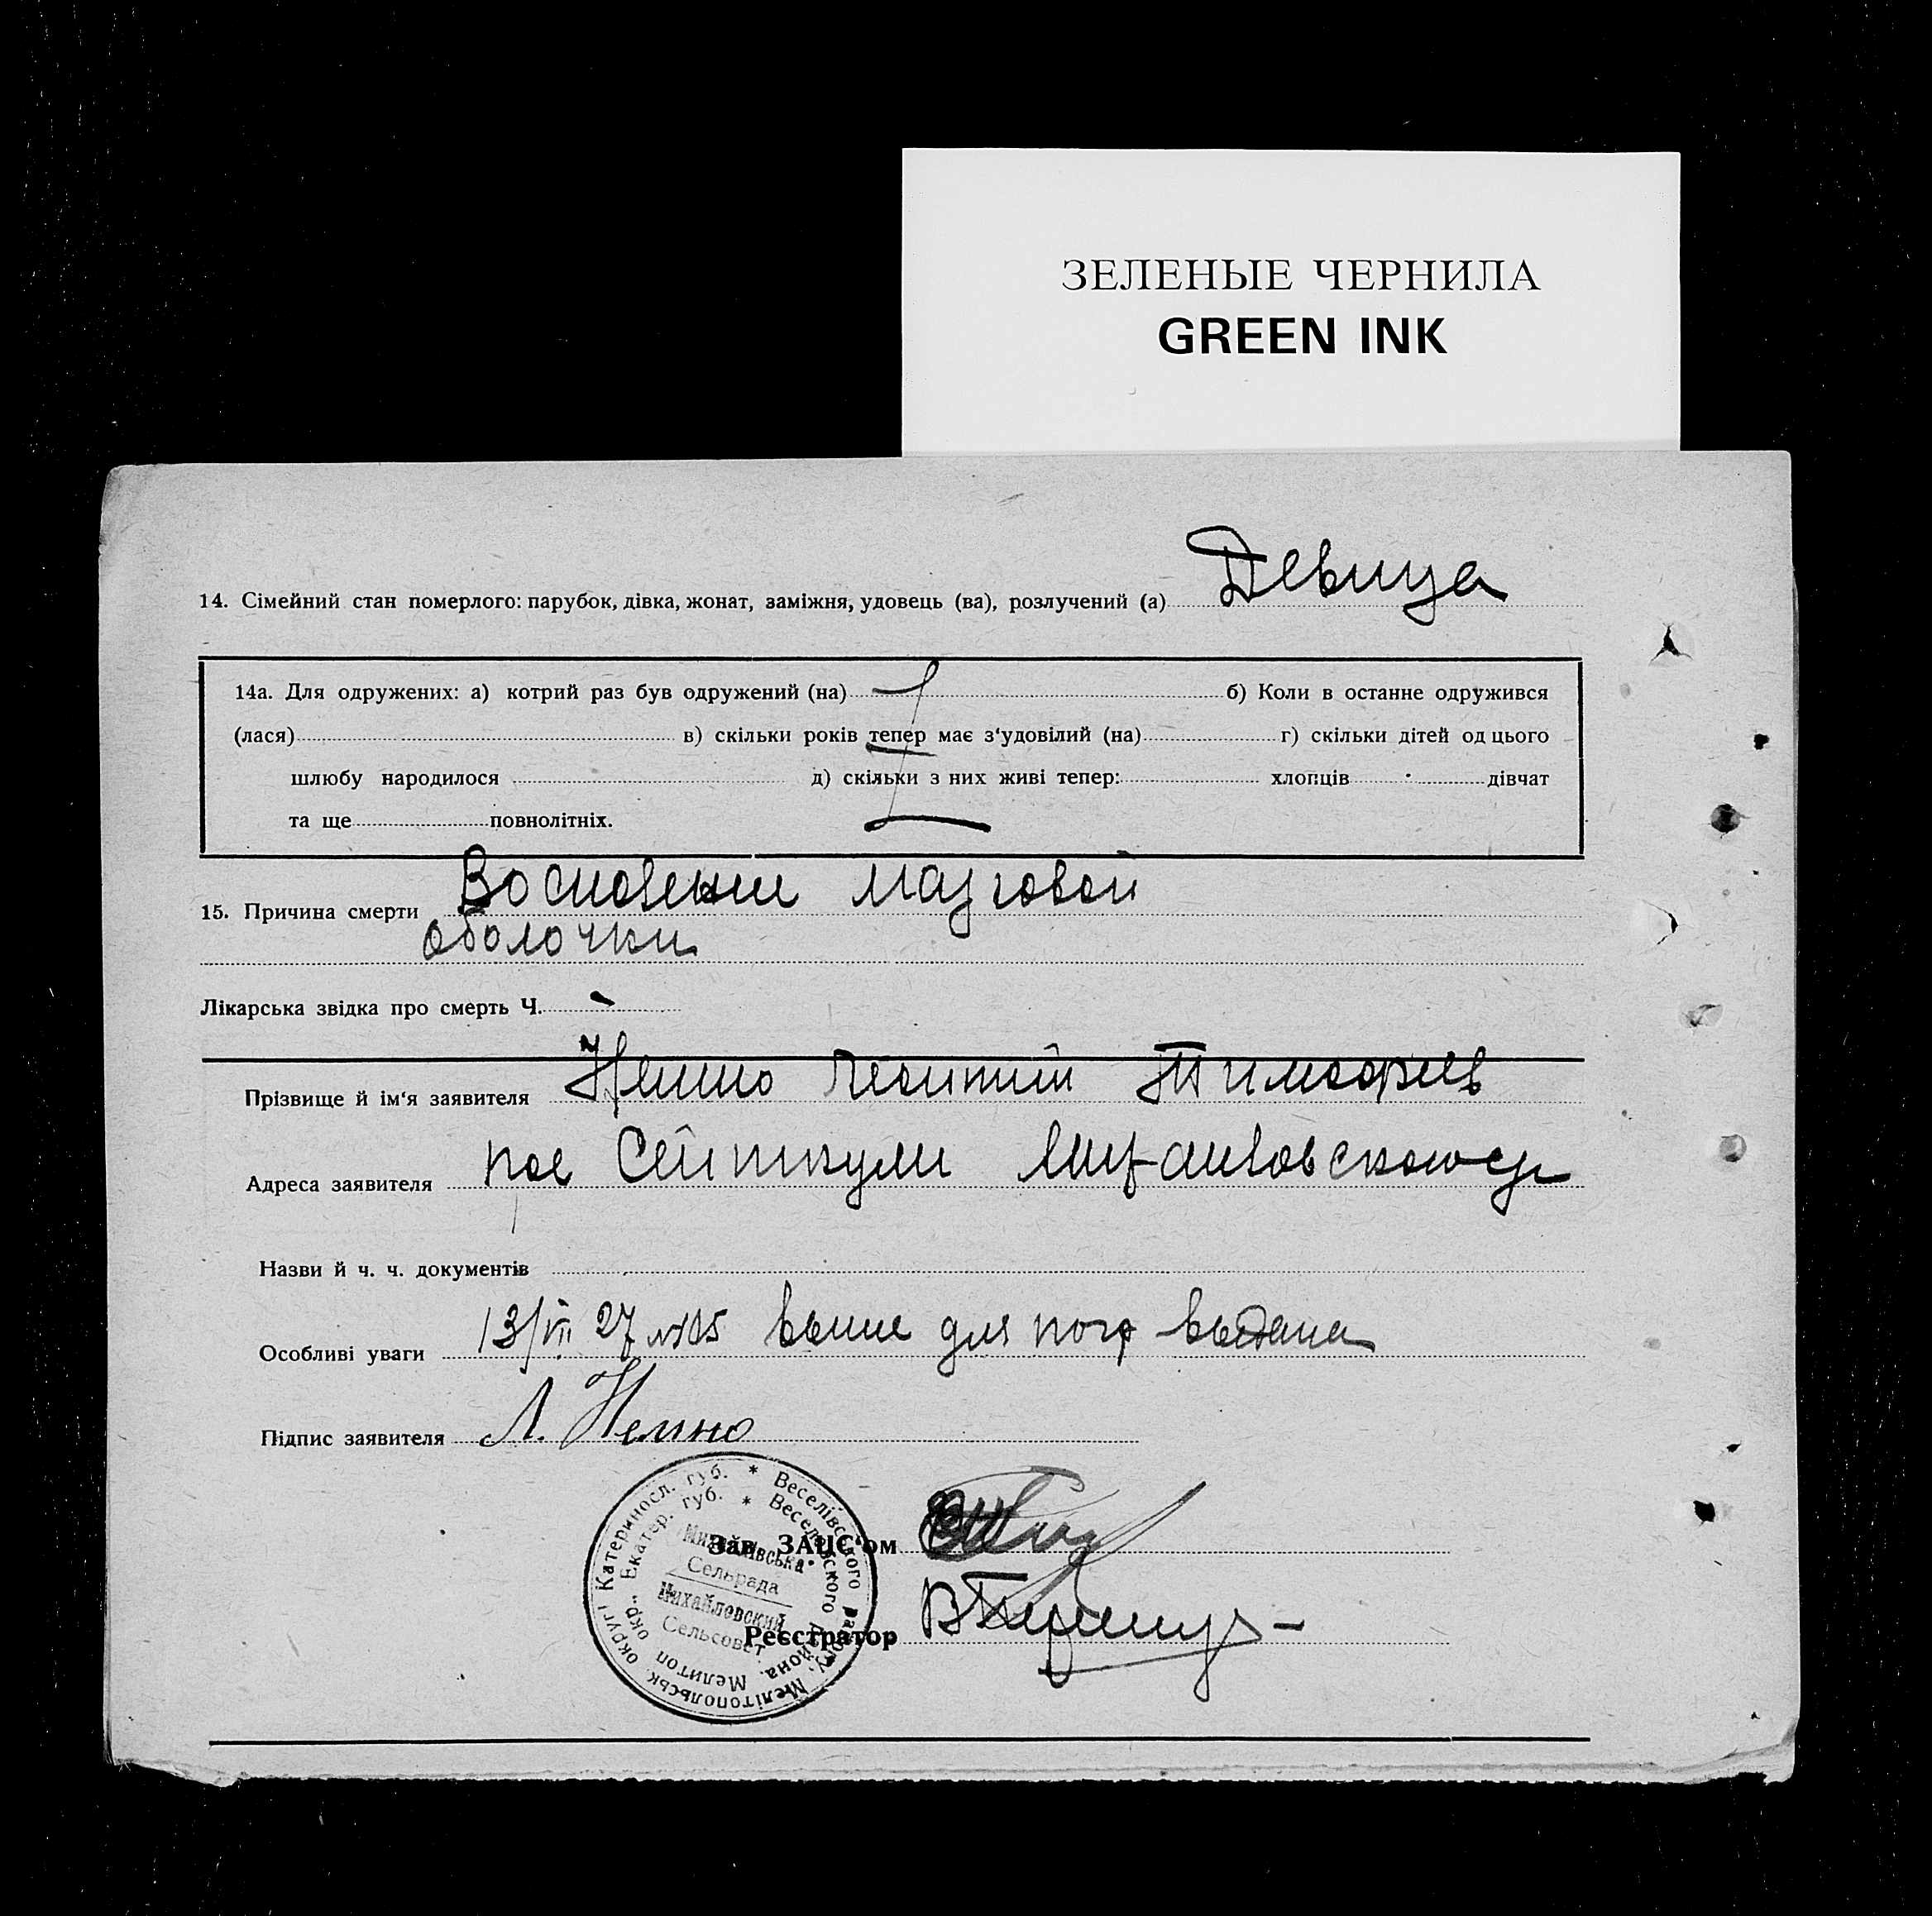 ЗЕЛЕНЫЕ ЧЕРНИЛА
GREEN INK
14. Сімейний стан померлого: парубок, дівка, жонат, заміжня, удовець (ва), розлучений (а) Девица
14а. Для одружених: а) котрий раз був одружений (на) б) Коли в останне одружився
(лася) в) скільки років тепер має з'удовілий (на) г) скільки дітей од цього
шлюбу народилося д) скільки з них живі тепер: хлопців дівчат
та ще повнолітніх.
15. Причина смерти мазговой
оболочки
Лікарська звідка про смерть Ч. -
Прізвище й ім'я заявителя Немно Леонтий Тимофеев
Адреса заявителя пос Сейткули
Назви й ч. ч. документів
Особливі уваги 13/VII 27 для выдана
Підпис заявителя Л. Немно
Зав. ЗАЦС'ом
Реєстратор
Катериносл. губ. * Веселівського району, Мелітопольськ. округі
Екатер. губ. * Веселовского района. Мелитоп окр.
Михайлівська
Сельрада
Михайловский
Сельсовет